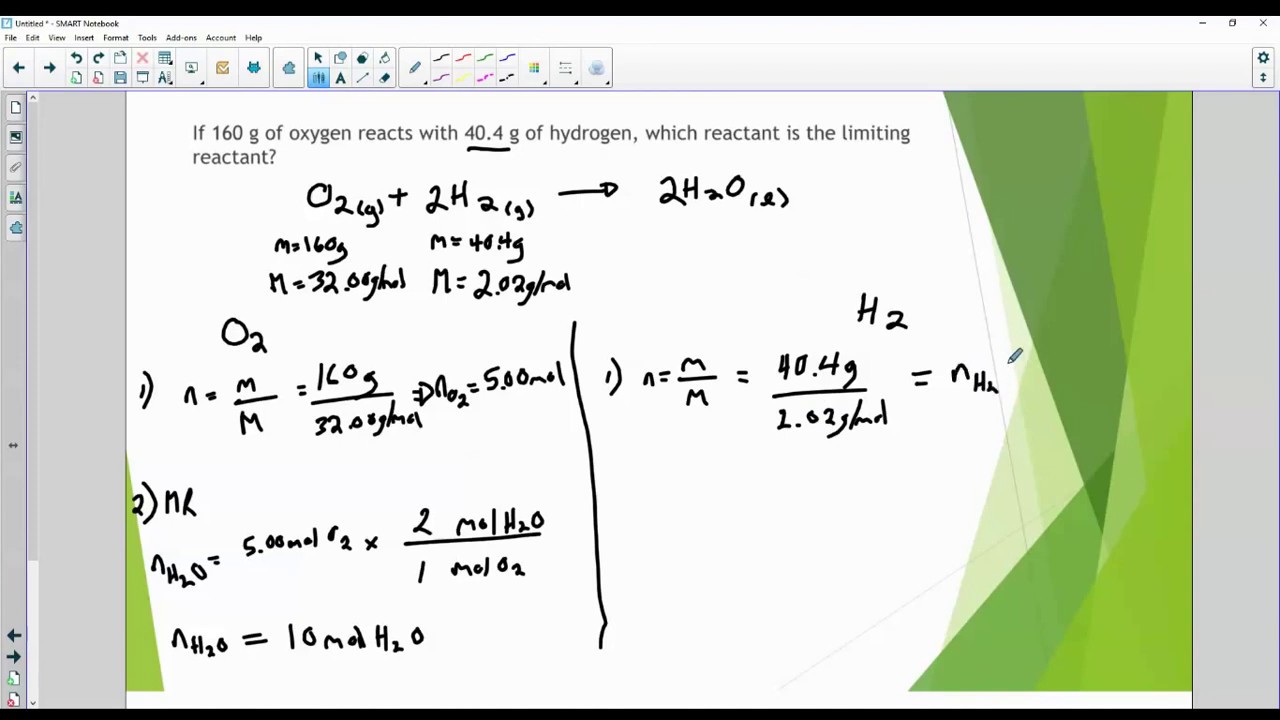 Untitled * - SMART Notebook
File Edit View Insert Format Tools Add-ons Account Help
If 160 g of oxygen reacts with 40.4 g of hydrogen, which reactant is the limiting
reactant?
O₂(g) + 2H₂(g) → 2H₂O(l)
m=160g m=40.4g
M=32.00g/mol M=2.02g/mol
O₂
1) n = m/M = 160g/32.00g/mol ⇒ nO₂ = 5.00mol
2) MR
nH₂O = 5.00mol O₂ x 2 mol H₂O/1 mol O₂
nH₂O = 10 mol H₂O
H₂
1) n = m/M = 40.4g/2.02g/mol = nH₂